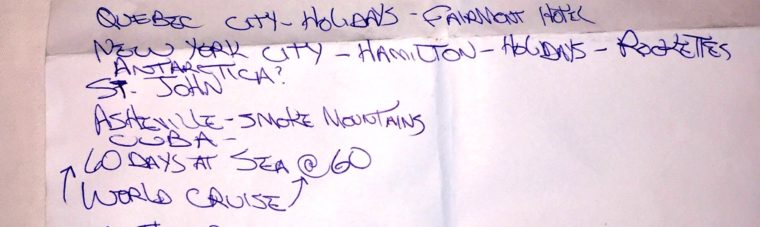 QUEBEC CITY - HOLIDAYS - FAIRMONT HOTEL
NEW YORK CITY - HAMILTON - HOLIDAYS - ROCKETTES
ANTARCTICA?
ST. JOHN
ASHEVILLE - SMOKE MOUNTAINS
CUBA -
60 DAYS AT SEA @ 60
WORLD CRUISE